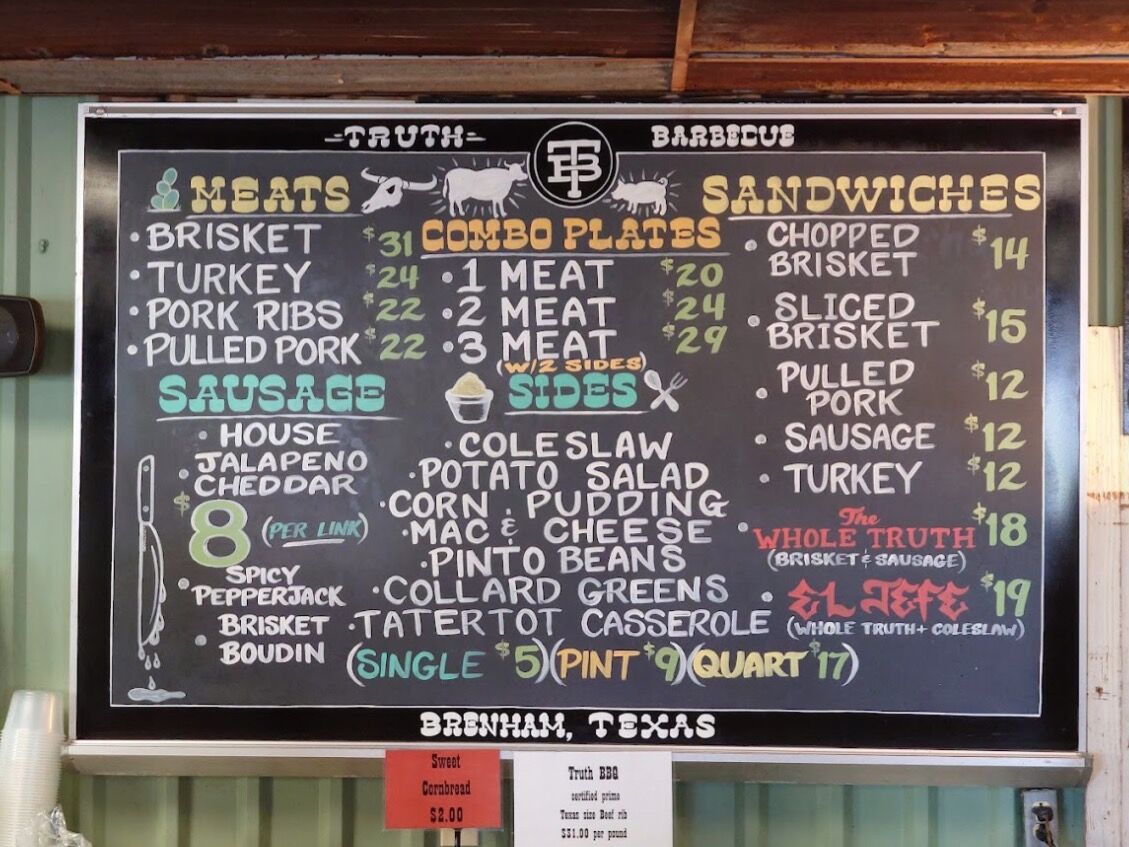 TRUTH
TB
BARBECUE
MEATS
BRISKET $31
TURKEY $24
PORK RIBS $22
PULLED PORK $22
SAUSAGE
HOUSE
JALAPENO
CHEDDAR
$8 (PER LINK)
SPICY
PEPPERJACK
BRISKET
BOUDIN
COMBO PLATES
1 MEAT $20
2 MEAT $24
3 MEAT $29
(W/2 SIDES)
SIDES
COLESLAW
POTATO SALAD
CORN PUDDING
MAC & CHEESE
PINTO BEANS
COLLARD GREENS
TATERTOT CASSEROLE
(SINGLE $5)(PINT $9)(QUART $17)
SANDWICHES
CHOPPED
BRISKET $14
SLICED
BRISKET $15
PULLED
PORK $12
SAUSAGE $12
TURKEY $12
The
WHOLE TRUTH $18
(BRISKET & SAUSAGE)
EL JEFE $19
(WHOLE TRUTH + COLESLAW)
BRENHAM, TEXAS
Sweet
Cornbread
$2.00
Truth BBQ
certified prime
Texas size Beef rib
$31.00 per pound